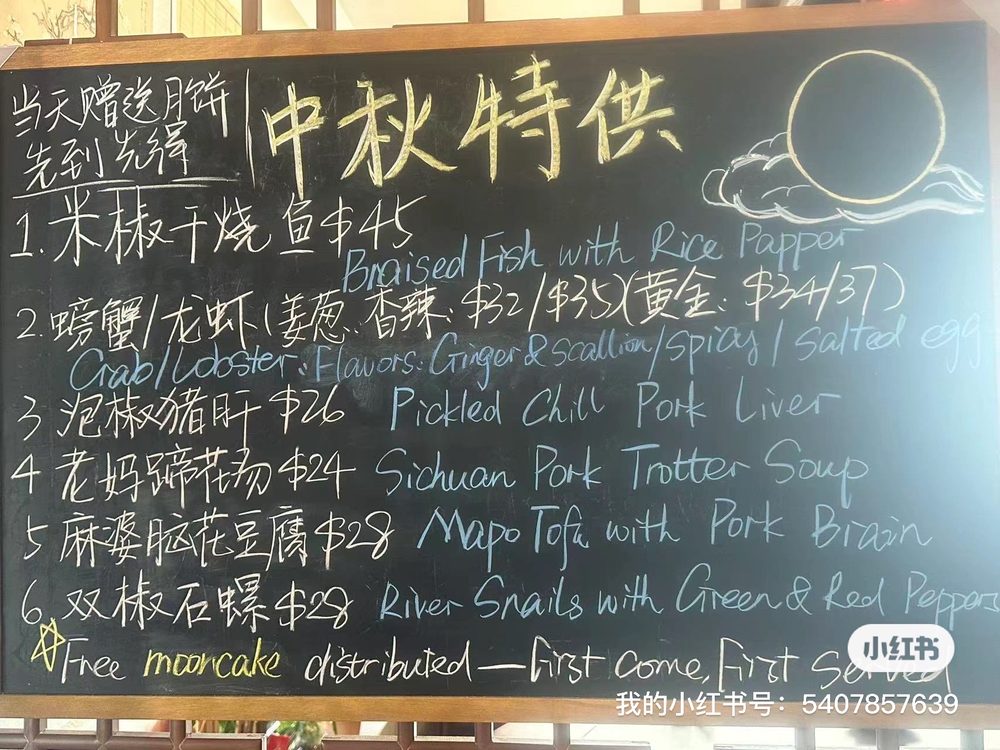 当天赠送月饼
先到先得
中秋特供
1. 米椒干烧鱼 $45
Braised Fish with Rice Papper
2. 螃蟹/龙虾(姜葱、香辣: $32/$35)(黄金: $34/37)
Crab/Lobster: Flavors: Ginger & Scallion/spicy/salted egg
3 泡椒猪肝 $26 Pickled Chill Pork Liver
4 老妈蹄花汤 $24 Sichuan Pork Trotter Soup
5 麻婆脑花豆腐 $28 Mapo Tofu with Pork Briain
6. 双椒石螺 $28 River Snails with Green & Red Peppers
Free mooncake distributed — First come, First served
小红书
我的小红书号：5407857639